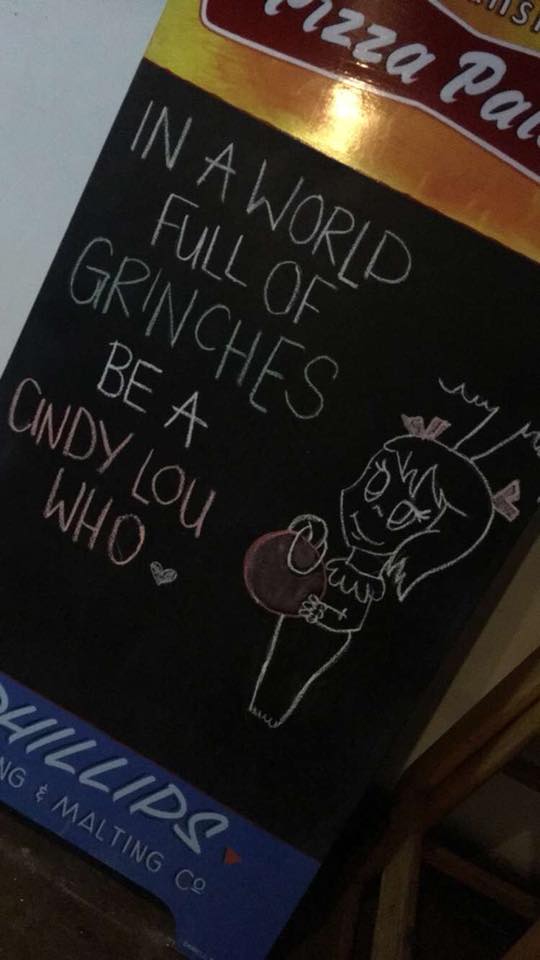 Pizza
IN A WORLD
FULL OF
GRINCHES
BE A
CINDY LOU
WHO
PHILLIPS
& MALTING Co